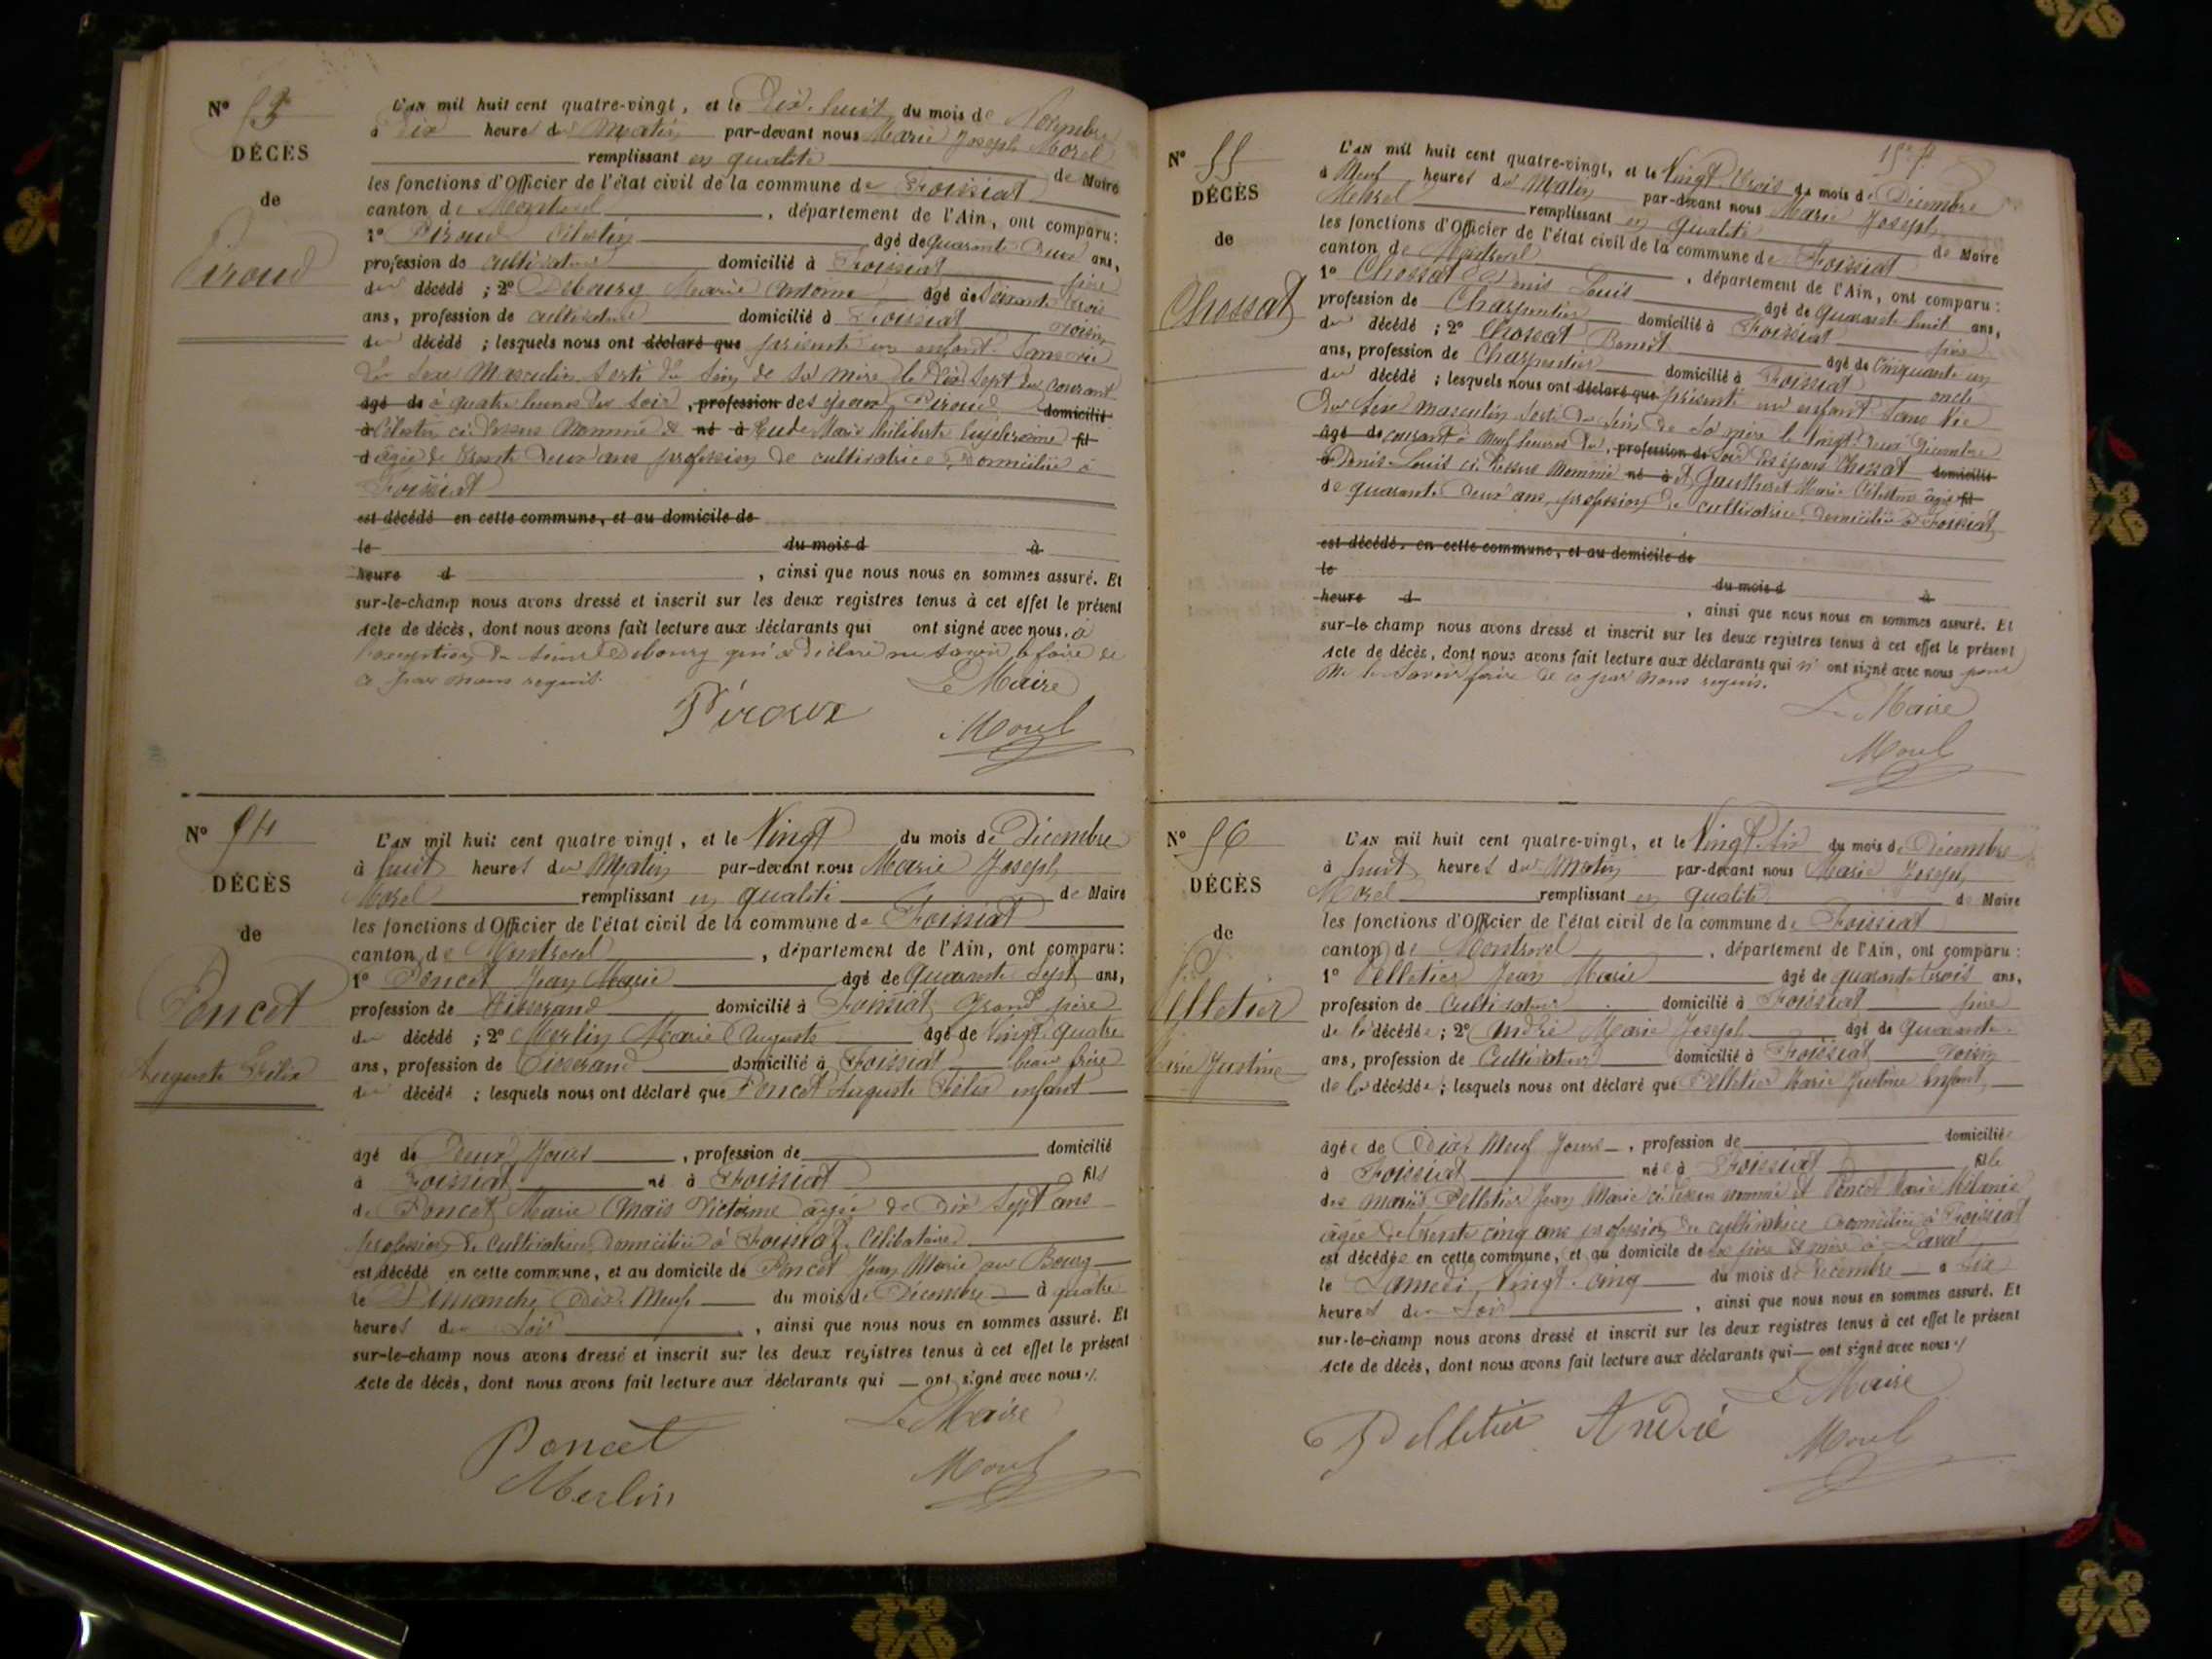 N° 53
DÉCÈS
de
Piroud
L'AN mil huit cent quatre-vingt, et le Dix-huit du mois de Novembre
à Dix heures du Matin par-devant nous Marie Joseph Morel
remplissant en qualité de Maire
les fonctions d'Officier de l'état civil de la commune de Foissiat
canton de Montrevel, département de l'Ain, ont comparu:
1° Piroud Célestin âgé de quarante Deux ans,
profession de cultivateur domicilié à Foissiat père
du décédé ; 2° Debourg Marie Antoine âgé de Soixante trois
ans, profession de cultivateur domicilié à Foissiat voisin
du décédé ; lesquels nous ont déclaré que présenté un enfant Sans vie
Du Sexe Masculin Sorti du Sein de Sa mère le Dix Sept du courant
âgé de à quatre heures du soir, profession des époux Piroud domicilié
à Célestin ci-dessus Nommé & né à Marie Philiberte fil
d âgée de trente Deux ans profession de cultivatrice, Domiciliée à
Foissiat
est décédé en cette commune, et au domicile de
le du mois d à
heure d , ainsi que nous nous en sommes assuré. Et
sur-le-champ nous avons dressé et inscrit sur les deux registres tenus à cet effet le présent
Acte de décès, dont nous avons fait lecture aux déclarants qui ont signé avec nous, à
l'exception du sieur Debourg qui a déclaré ne savoir le faire de
ce par nous requis.
Le Maire
Piroux
Morel
N° 54
DÉCÈS
de
Poncet
Auguste Félix
L'AN mil huit cent quatre vingt, et le Vingt du mois de Décembre
à huit heures du Matin par-devant nous Marie Joseph
Morel remplissant en qualité de Maire
les fonctions d'Officier de l'état civil de la commune de Foissiat
canton de Montrevel, département de l'Ain, ont comparu:
1° Poncet Jean Marie âgé de Quarante Sept ans,
profession de Tisserand domicilié à Foissiat Grand père
du décédé ; 2° Merlin Marie Auguste âgé de Vingt quatre
ans, profession de Tisserand domicilié à Foissiat beau frère
du décédé ; lesquels nous ont déclaré que Poncet Auguste Félix enfant
âgé de Deux Jours, profession de domicilié
à Foissiat né à Foissiat fils
de Poncet Marie Anaïs Victorine âgée de Dix Sept ans
profession de Cultivatrice Domiciliée à Foissiat, Célibataire
est décédé en cette commune, et au domicile de Poncet Jean Marie au Bourg
le Dimanche Dix-Neuf du mois de Décembre à quatre
heures du Soir, ainsi que nous nous en sommes assuré. Et
sur-le-champ nous avons dressé et inscrit sur les deux registres tenus à cet effet le présent
Acte de décès, dont nous avons fait lecture aux déclarants qui ont signé avec nous ./.
Le Maire
Poncet
Merlin
Morel
N° 55
DÉCÈS
de
Chossat
L'AN mil huit cent quatre-vingt, et le Vingt trois du mois de Décembre
à Neuf heures du Matin par-devant nous Marie Joseph
Morel remplissant en qualité de Maire
les fonctions d'Officier de l'état civil de la commune de Foissiat
canton de Montrevel, département de l'Ain, ont comparu:
1° Chossat Denis Louis âgé de quarante huit ans,
profession de Charpentier domicilié à Foissiat père
du décédé ; 2° Chossat Benoit âgé de Cinquante un
ans, profession de Charpentier domicilié à Foissiat oncle
du décédé ; lesquels nous ont déclaré que présenté un enfant Sans Vie
Du Sexe masculin Sorti du Sein de Sa mère le Vingt Deux Décembre
âgé de courant à Neuf heures du, profession de Soir Des époux Chossat domicilié
à Denis Louis ci-dessus Nommé né à & Gautheret Marie Célestine âgée fil
de quarante Deux ans, profession de cultivatrice, Domiciliée à Foissiat
est décédé, en cette commune, et au domicile de
le du mois d à
heure d , ainsi que nous nous en sommes assuré. Et
sur-le champ nous avons dressé et inscrit sur les deux registres tenus à cet effet le présent
Acte de décès, dont nous avons fait lecture aux déclarants qui n' ont signé avec nous pour
ne le Savoir faire de ce par nous requis.
Le Maire
Morel
N° 56
DÉCÈS
de
Pelletier
Marie Justine
L'AN mil huit cent quatre-vingt, et le Vingt Six du mois de Décembre
à huit heures du Matin par-devant nous Marie Joseph
Morel remplissant en qualité de Maire
les fonctions d'Officier de l'état civil de la commune de Foissiat
canton de Montrevel, département de l'Ain, ont comparu:
1° Pelletier Jean Marie âgé de quarante trois ans,
profession de Cultivateur domicilié à Foissiat père
de la décédée ; 2° André Marie Joseph âgé de Quarante
ans, profession de Cultivateur domicilié à Foissiat voisin
de la décédée ; lesquels nous ont déclaré que Pelletier Marie Justine Enfant
âgée de Dix Neuf Jours, profession de domiciliée
à Foissiat née à Foissiat fille
des mariés Pelletier Jean Marie ci-dessus nommé & Poncet Marie Mélanie
âgée de trente cinq ans profession de cultivatrice domiciliée à Foissiat
est décédée en cette commune, et au domicile de ses père & mère à Laval
le Samedi Vingt-cinq du mois de Décembre à Six
heures du Soir, ainsi que nous nous en sommes assuré. Et
sur-le-champ nous avons dressé et inscrit sur les deux registres tenus à cet effet le présent
Acte de décès, dont nous avons fait lecture aux déclarants qui ont signé avec nous ./
Le Maire
Pelletier André
Morel